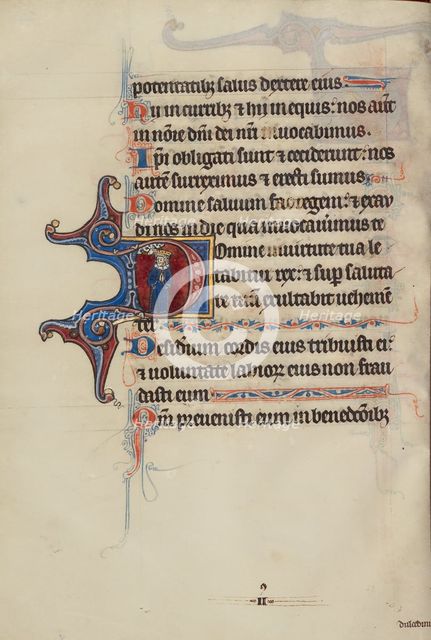 potentatibȝ salus dextere eius.
Hii in curribȝ & hii in equis: nos aut̄
in nōīe dn̄i dei nr̄i inuocabimus.
Ipi obligati sunt & ceciderunt: nos
autē surreximus & erecti sumus.
Domine saluum fac regem: & exau
di nos in die qua inuocauimus te
Domine in uirtute tua le
tabitur rex: & sup saluta
re tuū exultabit uehemē
ter.
Desidium cordis eius tribuisti ei:
& uoluntate labiorȝ eius non frau
dasti eum
Qm̄ preuenisti eum in benedcōibȝ
II
dulcedini
Heritage
Heritage
Heritage
Heritage
Heritage
Heritage